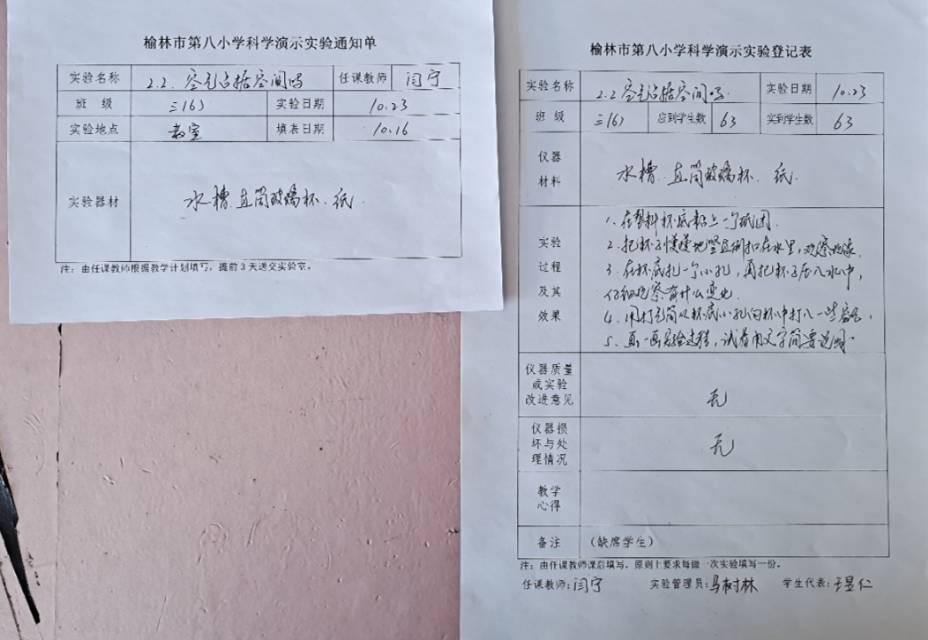 榆林市第八小学科学演示实验通知单
实验名称 2.2.空气占据空间吗 任课教师 闫宁
班 级 三(6) 实验日期 10.23
实验地点 教室 填表日期 10.16
实验器材 水槽.直筒玻璃杯.纸.
注：由任课教师根据教学计划填写，提前3天送交实验室。
榆林市第八小学科学演示实验登记表
实验名称 2.2空气占据空间吗. 实验日期 10.23
班 级 三(6) 应到学生数 63 实到学生数 63
仪器
材料
水槽.直筒玻璃杯.纸.
实验
过程
及其
效果
1.在塑料杯底粘上一个纸团.
2.把杯子慢慢地竖直倒扣在水里，观察现象
3.在杯底扎一个小孔，再把杯子压入水中，
仔细观察有什么变化.
4.用打气筒从杯底小孔向杯中打入一些空气，
5.画一画实验过程，试着用文字简要说明.
仪器质量
或实验
改进意见
无
仪器损
坏与处
理情况
无
教学
心得
备注 （缺席学生）
注：由任课教师课后填写，原则上要求每做一次实验填写一份。
任课教师:闫宁 实验管理员:马树林 学生代表:王昱仁